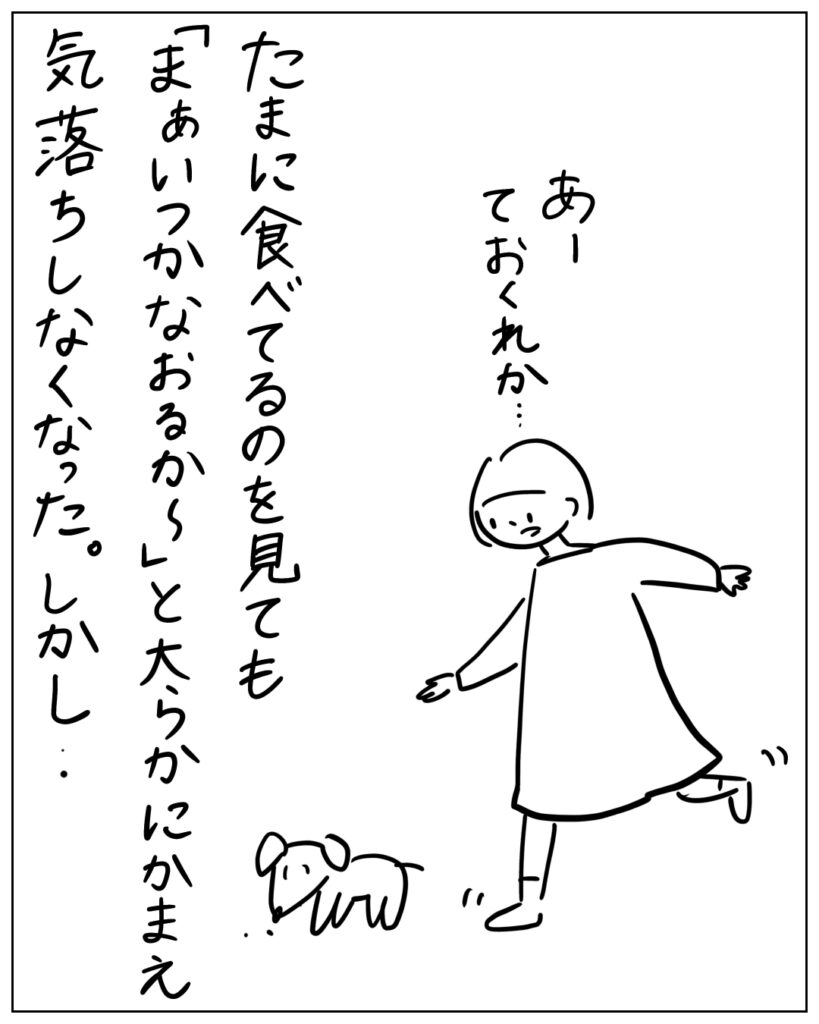 あー
ておくれか…
たまに食べてるのを見ても
「まぁいつかなおるか〜」と大らかにかまえ
気落ちしなくなった。しかし‥